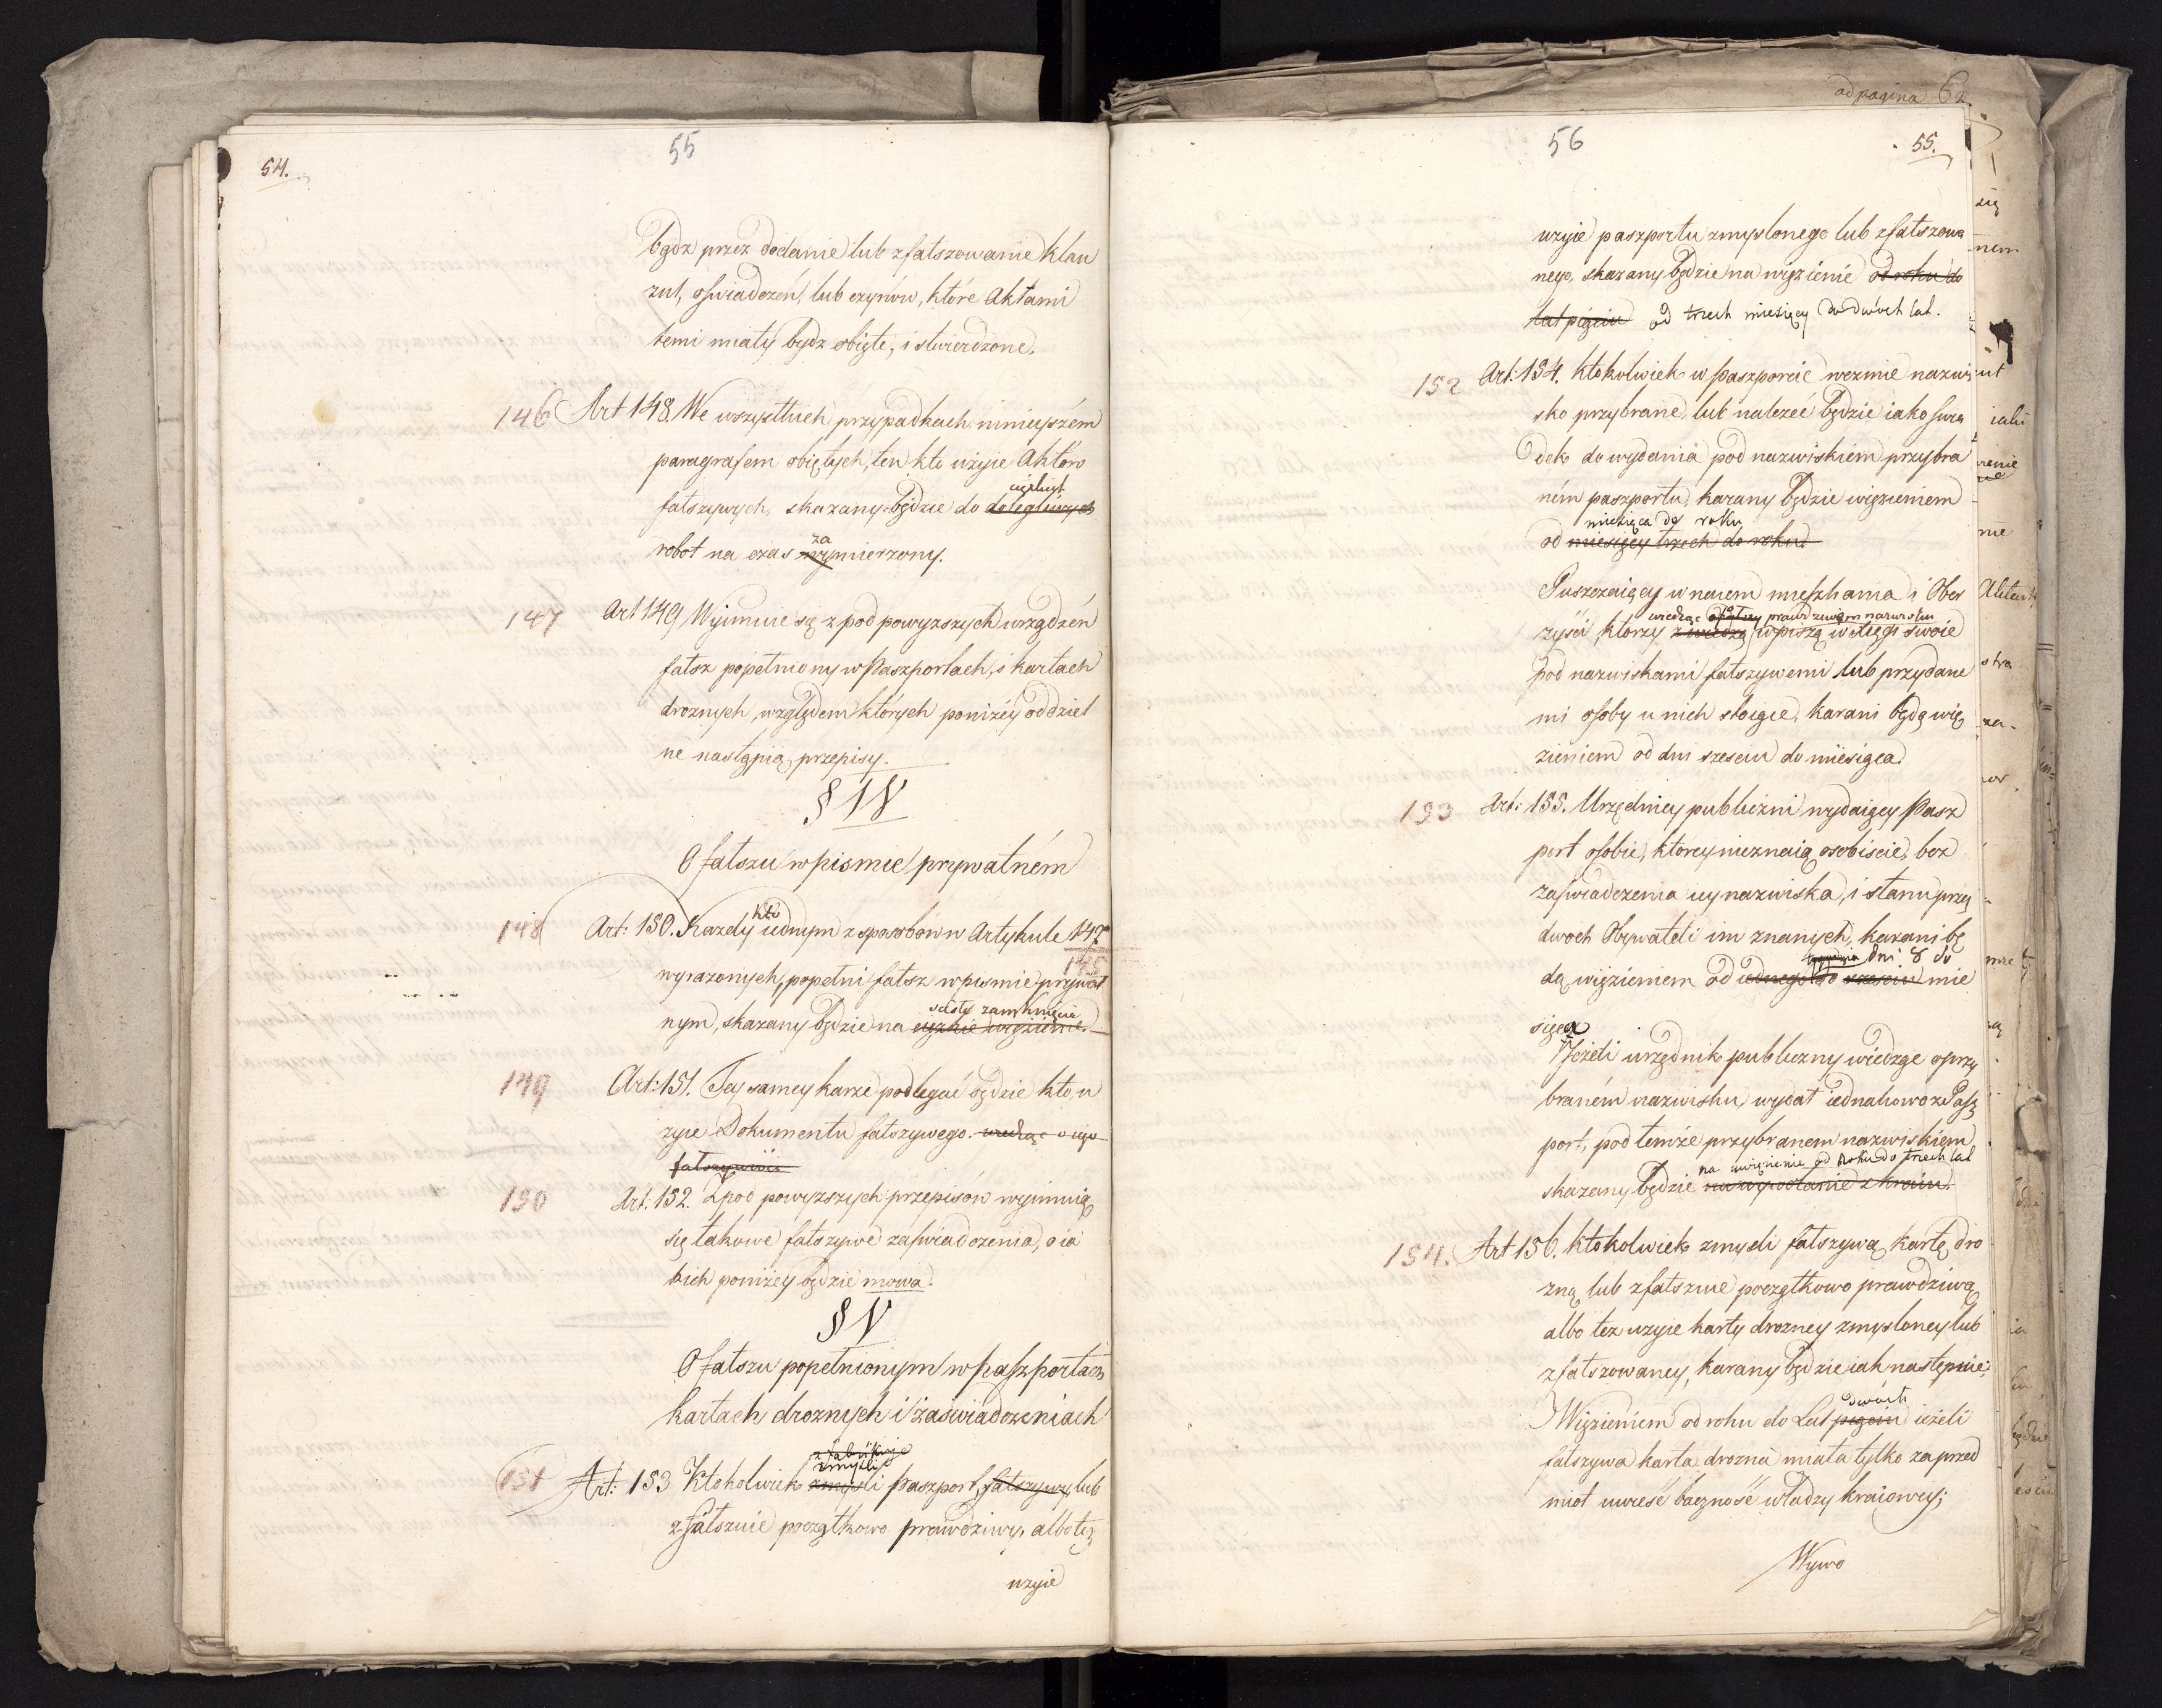 54.
55
bądz przez dodanie lub zfałszowanie klau
zul, oświadczeń, lub czynów, które Aktami
temi miały bydz obięte, i stwierdzone.
146 Art 148. We wszystkich przypadkach ninieyszém
paragrafem obiętych, ten kto użyie Aktów
ciężkich
fałszywych, skazany będzie do dolegliwych
za
robot na czas wymierzony.
147 Art 149. Wyimuie się z pod powyższych urządzeń
fałsz popełniony w Paszportach, i kartach
drożnych, względem których poniżéy oddziel
ne nastąpią przepisy.
§ IV
O fałszu w piśmie prywatném
kto
148 Art: 150. Kazdy iednym z sposobów w Artykule 147
145
wyrażonych, popełni fałsz w piśmie prywat
scisłe zamknięcie
nym, skazany będzie na ciężkie więzienie.
149 Art: 151. Tey samey karze podlegać będzie kto, u
żyie Dokumentu fałszywego. wiedząc o iego
fałszywości
150 Art: 152. Z pod powyższych przepisów wyimuią
się takowe fałszywe zaświadczenia, o ia
kich poniżey będzie mowa.
§ V
O fałszu popełnionym w Paszportach
kartach drożnych i zaświadczeniach
zfabrikuje
zmyśli
151 Art: 153 Ktokolwiek zmyśli Paszport, fałszywy lub
zfałszuie początkowo prawdziwy, albo też
użyie
ad pagina 62
56
55.
użyie paszportu zmyślonego lub zfałszowa
nego, skazany będzie na więzienie od roku do
lat pięciu od trzech miesięcy do dwóch lat.
152 Art: 154. Ktokolwiek w Paszporcie wezmie nazwi
sko przybrane, lub należeć będzie iako świa
dek do wydania pod nazwiskiem przybra
ném paszportu, karany będzie więzieniem
miesiąca do roku
od miesięcy trzech do roku.
Puszczaiący w naiem mieszkania i Ober
wiedząc prawdziwem nazwisku
żyści, którzy z wiedzą wpiszą w xięgi swoie
pod nazwiskami fałszywemi lub przydane
mi osoby u nich stoiące, karani będą wię
zieniem od dni sześciu do miesiąca.
153 Art: 155. Urzędnicy publiczni wydaiący Pasz
port osobie, którey nieznaią osobiście, bez
zaświadczenia iey nazwiska, i stanu przez
dwoch Obywateli im znanych, karani bę
dni 8 do
dą więzieniem od iednego do sześciu mie
siąca
Jeżeli urzędnik publiczny wiedząc o przy
braném nazwisku, wydał iednakowoż Pasz
port, pod temże przybranem nazwiskiem,
na uwięzienie od Roku do trzech lat
skazany będzie na wywołanie z kraiu.
154. Art 156. Ktokolwiek zmyśli fałszywą kartę dro
żną lub zfałszuie początkowo prawdziwą
albo też użyie karty drożney zmyśloney lub
zfałszowaney, karany będzie iak następuie:
dwóch
Więzieniem od roku do Lat pięciu ieżeli
fałszywa karta drożna miała tylko za przed
miot uwieść baczność władzy kraiowey;
Wywo